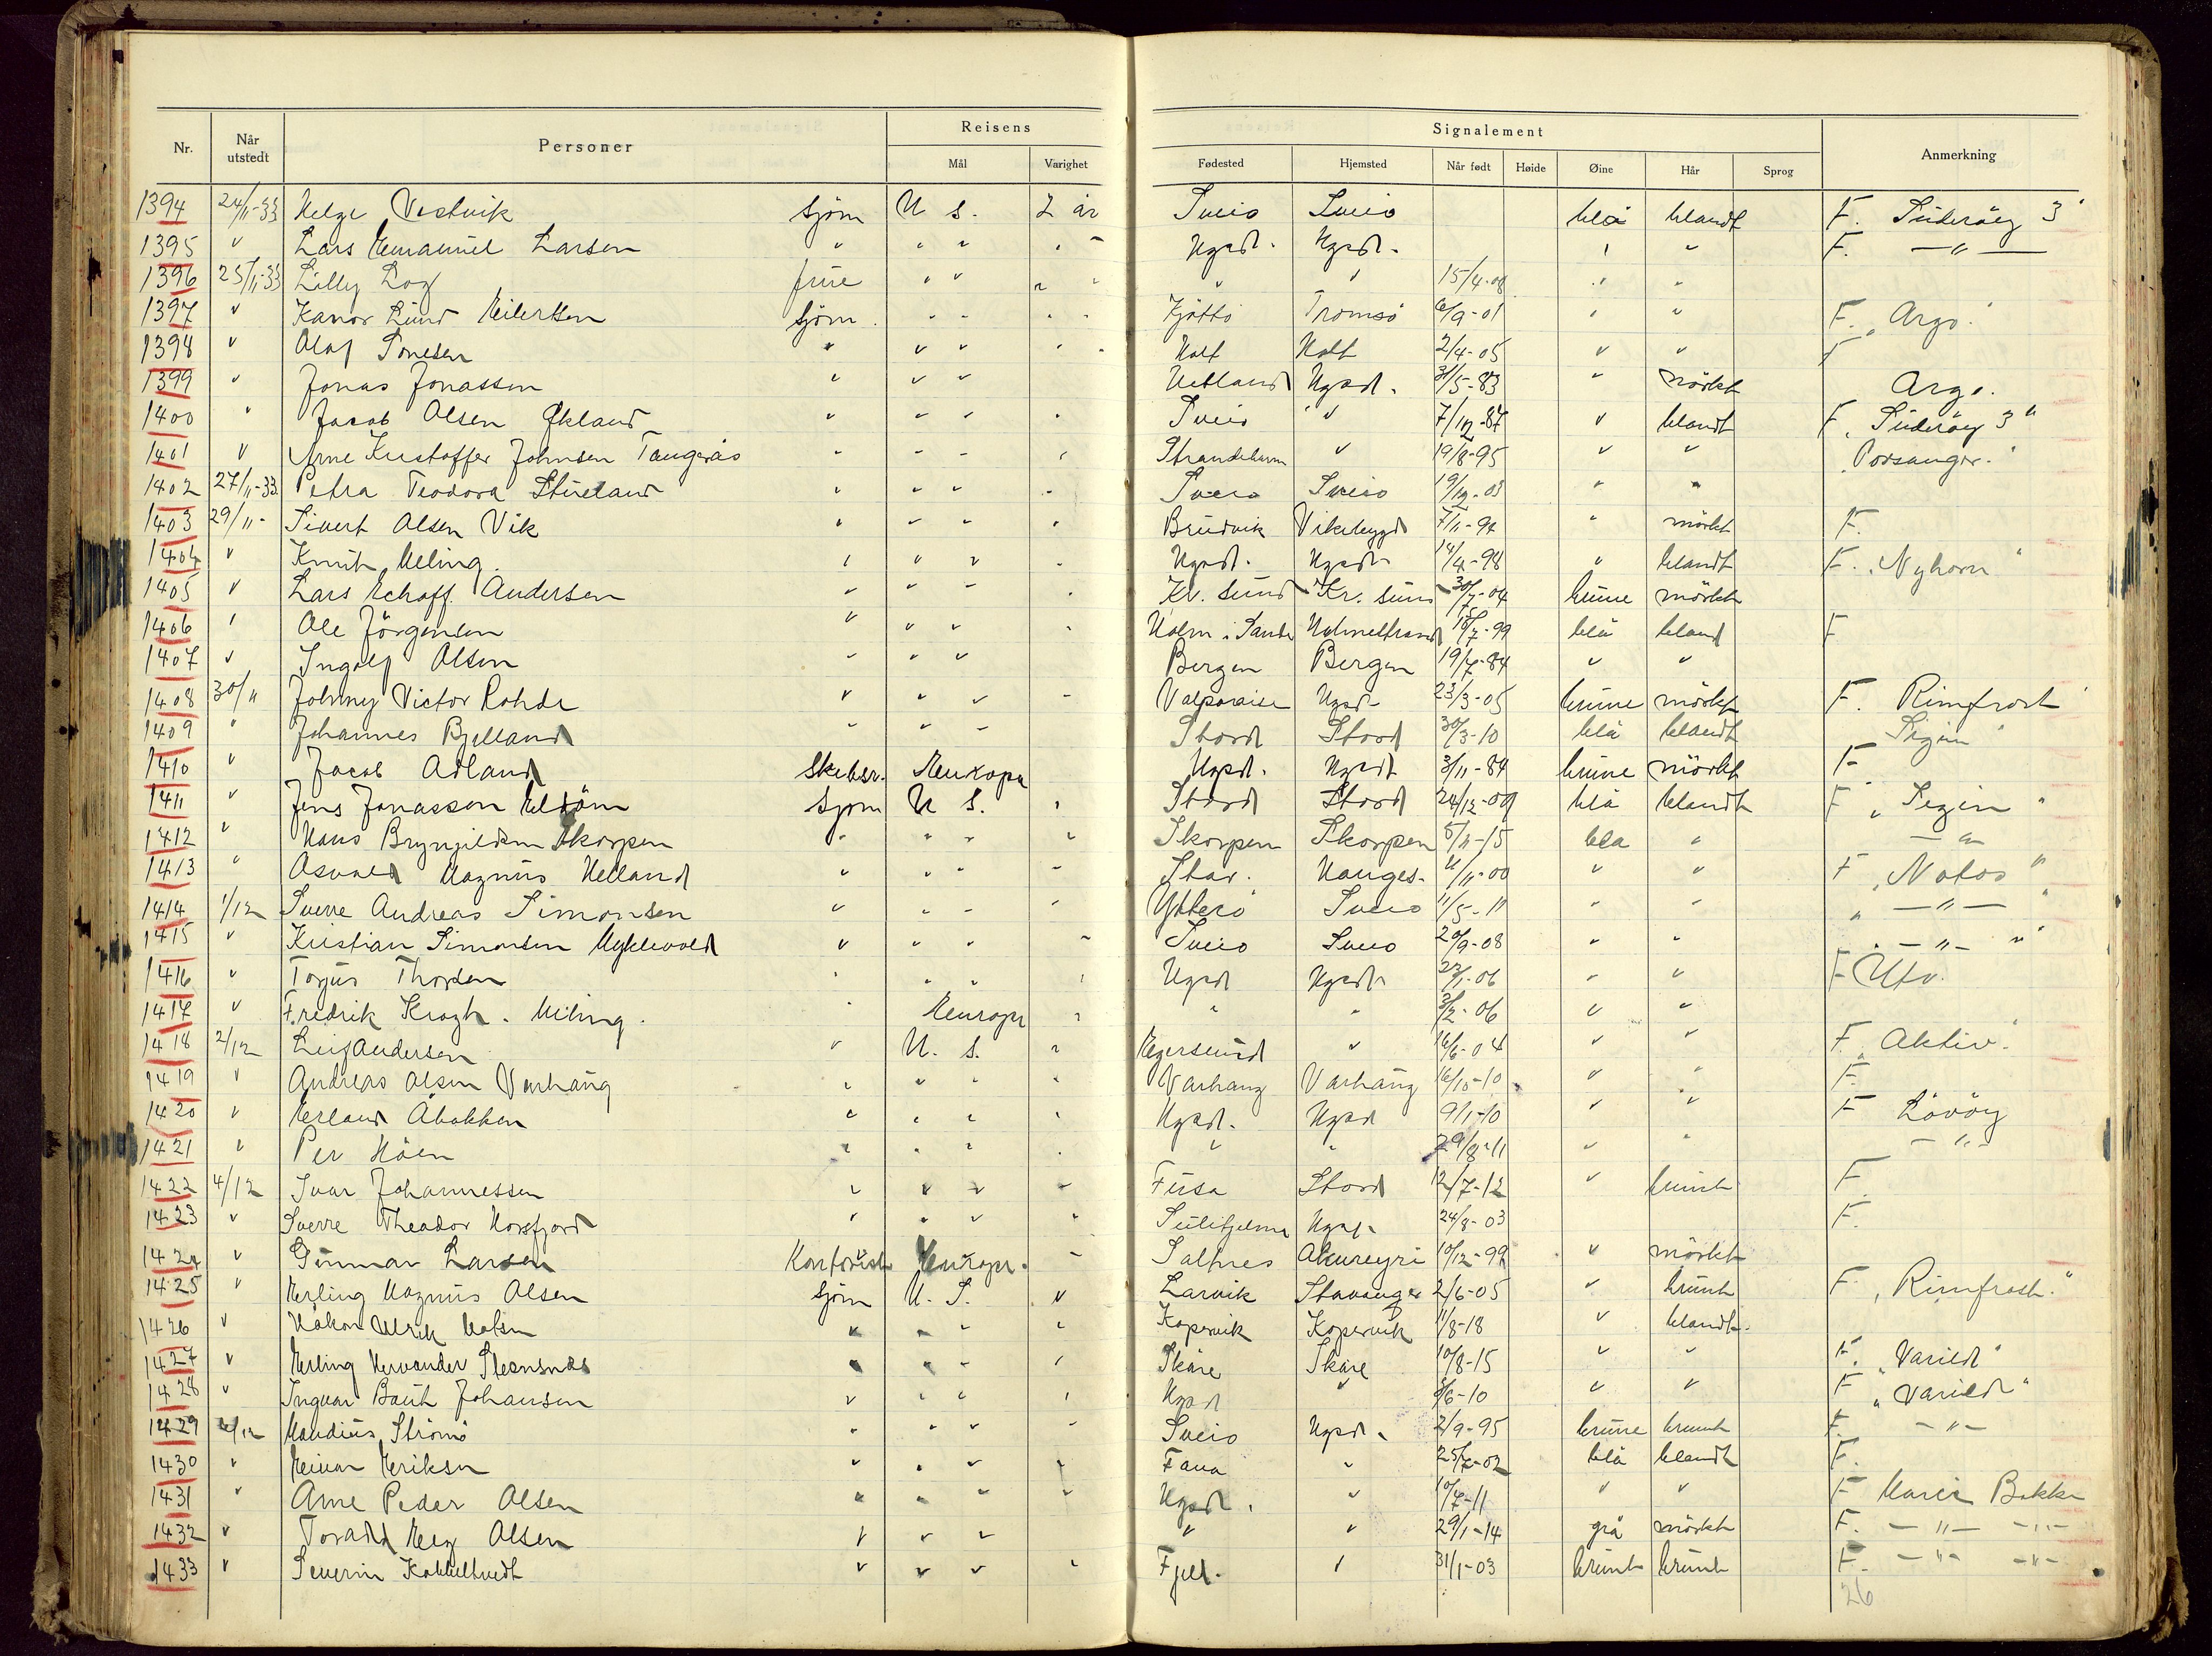 Reisens Signalement
Nr. Når utstedt Personer Mål Varighet Fødested Hjemsted Når født Høide Øine Hår Sprog Anmerkning
1394 24/11-33 Helge Vestvik Sjøm U S. 2 år Sveio Sveio blå blondt F. Süderöy 3"
1395 " Lars Emanuel Larsen " " " " " Hgsd. Hgsd. " " F. — " —
1396 25/11-33 Lilly Log frue " " " " " " 15/4-08 " "
1397 " Kanor Lund Eilertsen Sjøm. " " " " Kjötta Tromsö 6/9-01 " " F. "Argo."
1398 " Olaf Tonesen " " " " " Holt Holt 2/4-05 " " F
1399 " Jonas Jonassen " " " Hetland Hgsd. 31/5-83 " mörkt Argo.
1400 " Jacob Olsen Økland " " " " Sveio " 7/12-87 " blondt F. Süderöy 3"
1401 " Arne Kristoffer Johnsen Tangerås " " " " Strandebarm " 19/8-95 " " "Porsanger."
1402 27/11-33. Petra Teodora Stueland " " " " Sveio Sveio 19/12-03 " "
1403 29/11- Sivert Olsen Vik " " " " Bruvik Vikebygd 7/11-94 " mörkt F.
1404 " Knut Eeling. " " " " Hgsd. Hgsd. 14/4-98 " blondt F. "Nyhorn"
1405 " Lars Echoff. Andersen " " " " Kr. sund Kr. sund 30/7-04 brune mörkt
1406 " Ole Jörgensen " " " " Holm i Sande Holmestrand 15/7-99 blå blond F
1407 " Ingolf Olsen " " " Bergen Bergen 19/7-84 " "
1408 30/11 Johnny Victor Rohde " " " " Valparaiso Hgsd. 23/3-05 brune mörkt F. Rimfrost
1409 " Johannes Bjelland " " " Stord Stord 30/3-10 blå blondt Segin
1410 " Jacob Adland Skibsr. Europa Hgsd. Hgsd. 3/11-84 brune mörkt F
1411 " Jens Jonassen Eldöen Sjøm U S. " Stord Stord 24/12-09 blå blondt F "Segin"
1412 " Hans Brynjildsen Skorpen " " " " Skorpen Skorpen 5/11-15 blå " — " —
1413 " Osvald Magnus Helland " " " " Stav. Hauges. 11/11-00 " " F "Notos"
1414 1/12 Sverre Andreas Simonsen " " " " Ytterö Sveio 11/5-11 " " " — " — "
1415 " Kristian Simonsen Myklevold " " " " Sveio Sveio 20/9-08 " " " — " — "
1416 " Torjus Thorsen " " " " Hgsd Hgsd. 22/1-06 " " F Utv.
1417 " Fredrik Krogh. Meling. " Europa " " " 3/2-06 " "
1418 2/12 Leif Andersen " U. S. " Egersund " 16/6-04 " " F. "Aktiv."
1419 " Andreas Olsen Varhaug " " " " Varhaug Varhaug 16/10-10 " " F.
1420 " Erland Åbakken " " " " Hgsd. Hgsd 9/1-10 " " F Lövöy
1421 " Per Höen " " " " " " 29/8-11 " " — " —
1422 4/12 Ivar Johannessen " " " " Fusa Stord 12/7-12 " brunt F
1423 " Sverre Theodor Horsfjord " " " " Sulitjelma Hgsd. 24/8-03 F.
1424 " Gunnar Larsen Kontorist Europa. " Saltnes Akureyri 10/12-99 " mörkt
1425 " Erling Magnus Olsen Sjøm U. S. " Larvik Stavanger 2/6-05 " brunt F "Rimfrost."
1426 " Håkon Ulrik " " " " Kopervik Kopervik 1/8-18 " blondt.
1427 " Erling Stensnæs " " " " Skåre Skåre 10/8-15 " " F. "Varild"
1428 " Ingvar Johansen " " " " Hgsd " 3/6-10 " " F "Varild"
1429 4/12 Strömö " " " " Sveio Hgsd. 2/9-95 brune brunt F. — " —
1430 " Einar Eriksen " " " " Fana " 25/7-02 blå blondt F.
1431 " Arne Peder Olsen " " " " Hgsd. " 10/7-11 " " F Marie Bakke
1432 " Torald Olsen " " " " " 29/1-14 grå mörkt F. — " — — " —
1433 " Severin Kobbeltvedt " " " " Fjell. " 31/1-03 brunt brunt F. — " — — " —
26